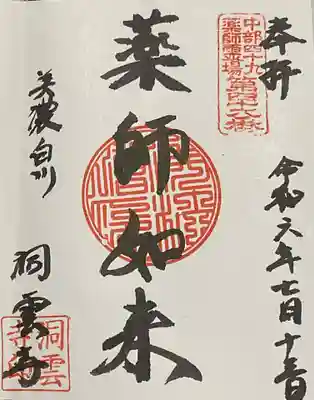 奉拝
令和六年七月十三日
中部四十九
薬師霊場
薬師如来
美濃白川
洞雲寺
洞雲